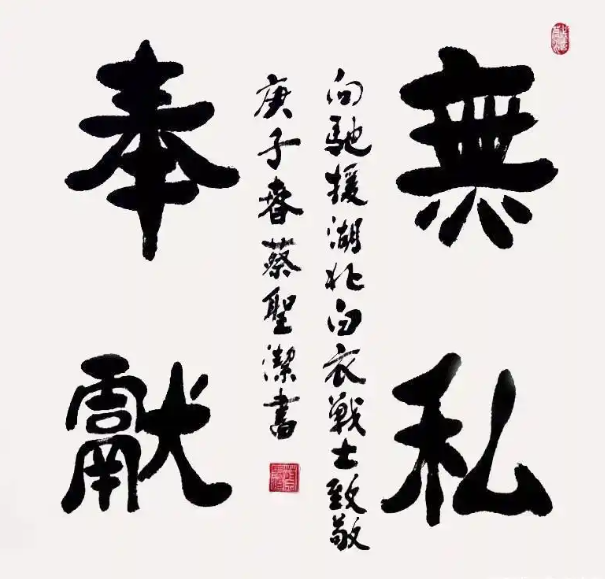 無私
奉獻
向馳援湖北白衣戰士致敬
庚子春蔡聖潔書